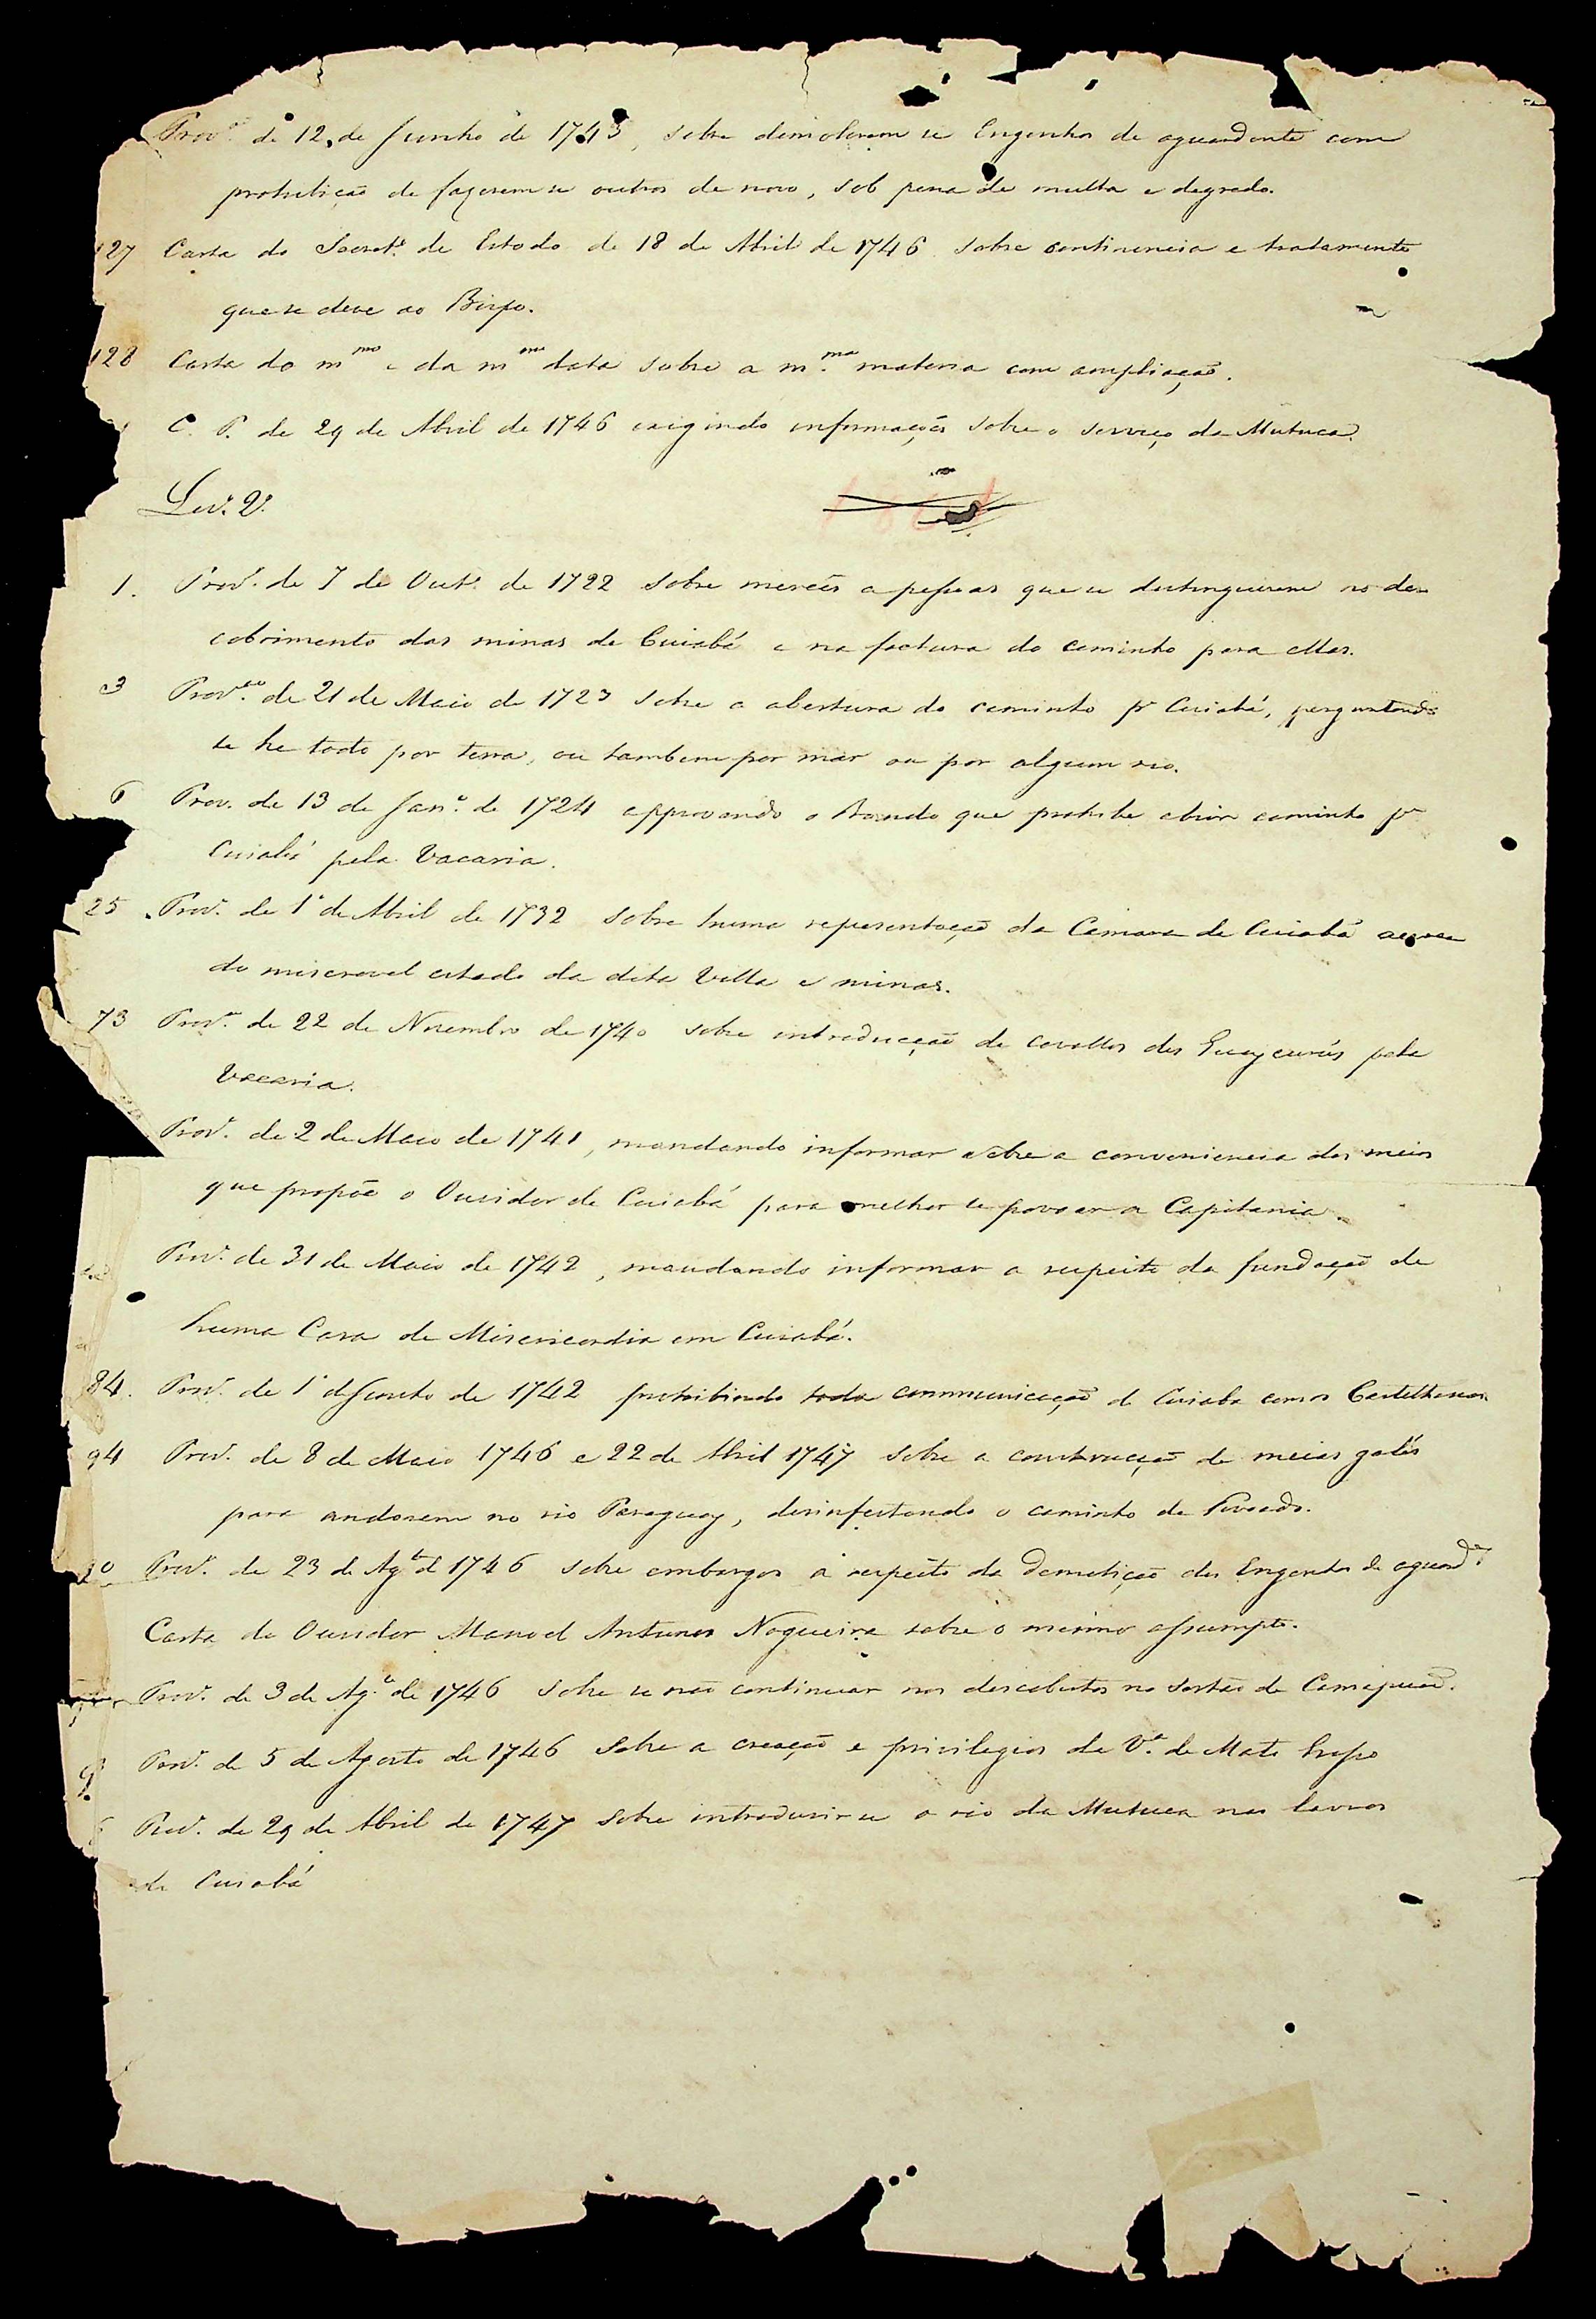 Prov.ão de 12 de Junho de 1743, sobre demolerem se Engenhos de aguardente com
prohibição de fazerem se outros de novo, sob pena de multa e degredo.
127 Carta do Secret.º de Estado de 18 de Abril de 1746 sobre continencia e tratamento
que se deve ao Bispo.
128 Carta do m.mo e da m.ma data sobre a m.ma materia com ampliação.
C. P. de 29 de Abril de 1746 exigindo informações sobre o serviço da Mutuca.
Liv. 2.
1. Prov. de 7 de Out.º de 1722 sobre mercês a pessoas que se destinguirem no des
cobrimento das minas de Cuiabá e na factura do caminho para ellas.
3 Prov.ão de 21 de Maio de 1723 sobre a abertura do caminho p.ª Cuiabá, perguntando
se he todo por terra, ou tambem por mar ou por algum rio.
6 Prov. de 13 de Jan.º de 1724 approvando o Bando que prohibe abrir caminho p.ª
Cuiabá pela Vacaria.
25 Prov. de 1º de Abril de 1732 sobre huma representação da Camara de Cuiabá acerca
do miseravel estado da dita Villa e minas.
73 Prov. de 22 de Novembro de 1740 sobre introducção de cavallos dos Guaycurús pela
Vacaria.
Prov. de 2 de Maio de 1741, mandando informar sobre a conveniencia dos meios
que propõe o Ouvidor de Cuiabá para melhor se povoar a Capitania.
Prov. de 31 de Maio de 1742, mandando informar a respeito da fundação de
huma Casa de Misericordia em Cuiabá.
84. Prov. de 1º de Junho de 1742 prohibindo toda communicação de Cuiaba com os Castelhanos.
94 Prov. de 8 de Maio 1746 e 22 de Abril 1747 sobre a construcção de meias galés
para andarem no rio Paraguay, desinfestando o caminho de Povoado.
Prov. de 23 de Ag.to de 1746 sobre embargos a respeito da demolição dos Engenhos de aguard.e
Carta do Ouvidor Manoel Antunes Nogueira sobre o mesmo assumpto.
Prov. de 3 de Ag.to de 1746 sobre se não continuar nos descobertos no sertão de Camapuão.
Prov. de 5 de Agosto de 1746 sobre a creação e privilegios da V.ª de Mato Grosso
Prov. de 29 de Abril de 1747 sobre introdusir se o rio da Mutuca nas lavras
de Cuiabá